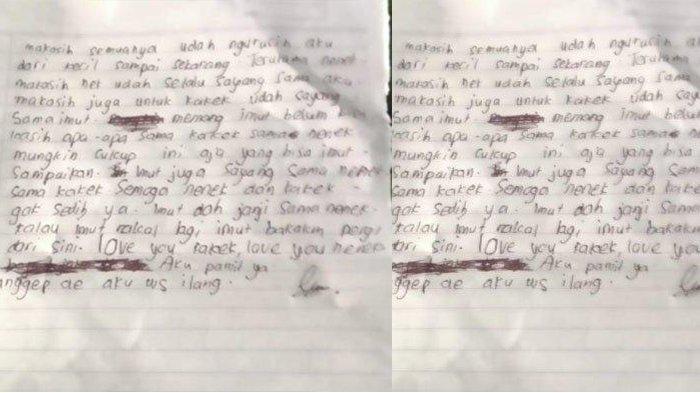 makasih semuanya udah ngurusin aku
dari kecil sampai sekarang Terutama nenek
makasih nek udah selalu sayang sama aku.
makasih juga untuk kakek udah sayang
Sama imut memang imut belum bisa
kasih apa-apa sama kakek sama nenek
mungkin cukup ini aja yang bisa imut
Sampaikan. imut juga sayang sama nenek
sama kakek Semoga nenek dan kakek
gak Sedih ya. imut dah janji Sama nenek.
kalau imut nakal lagi, imut bakalan pergi
dari sini. love you kakek, love you nenek
Aku pamit ya
anggep ae aku wis ilang.
makasih semuanya udah ngurusin
dari kecil sampai sekarang Terutama
makasih nek udah selalu sayang sama
makasih juga untuk kakek udah sayang
Sama imut memang imut belum
kasih apa-apa sama kakek sama nenek
mungkin cukup ini aja yang bisa imut
Sampaikan. imut juga sayang sama
sama kakek Semoga nenek dan kakek
gak Sedih ya. imut dah janji Sama nenek.
kalau imut nakal lagi, imut bakalan
dari sini. love you kakek, love you
Aku pamit ya
ggep ae aku wis ilang.